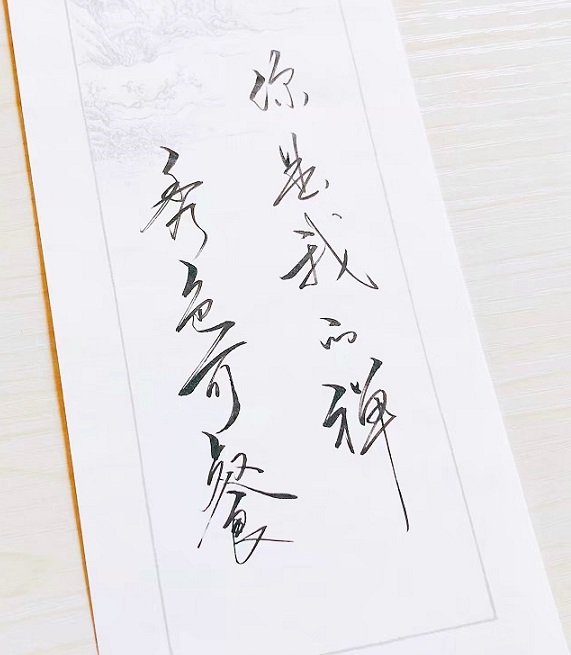 你是我的禅
秀色可餐